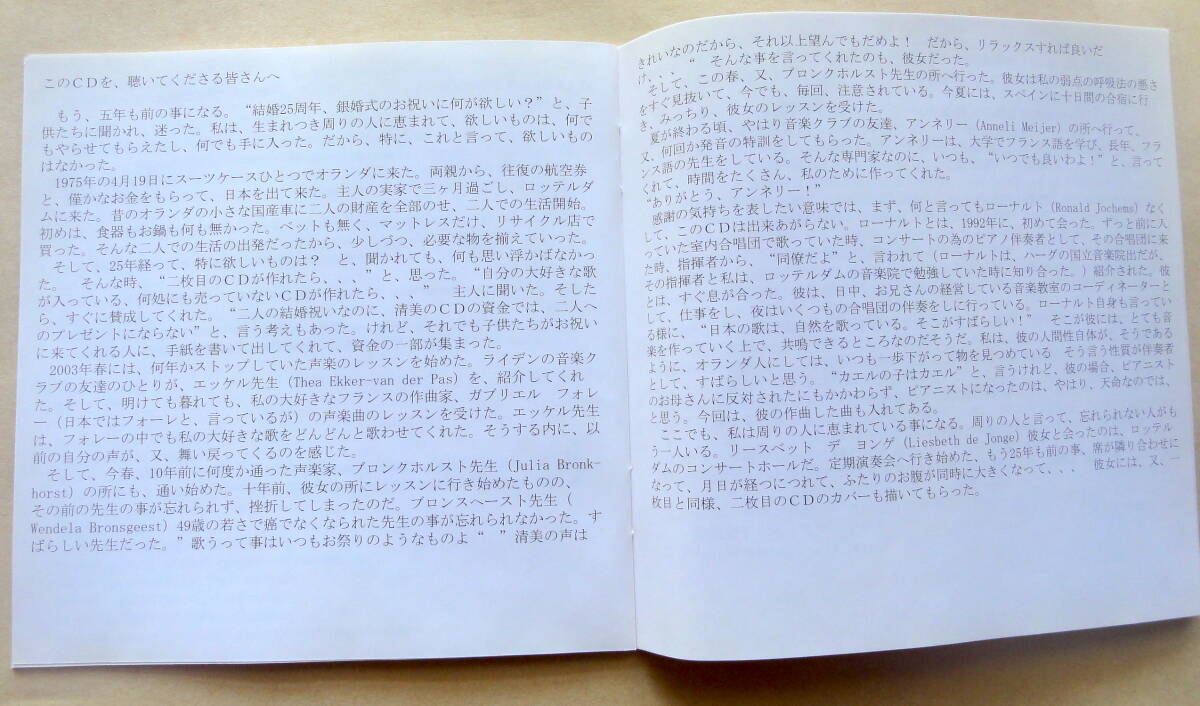 このＣＤを、聴いてくださる皆さんへ
もう、五年も前の事になる。 “結婚25周年、銀婚式のお祝いに何が欲しい？”と、子
供たちに聞かれ、迷った。私は、生まれつき周りの人に恵まれて、欲しいものは、何で
もやらせてもらえたし、何でも手に入った。だから、特に、これと言って、欲しいもの
はなかった。
1975年の4月19日にスーツケースひとつでオランダに来た。両親から、往復の航空券
と、僅かなお金をもらって、日本を出て来た。主人の実家で三ヶ月過ごし、ロッテルダ
ムに来た。昔のオランダの小さな国産車に二人の財産を全部のせ、二人での生活開始。
初めは、食器もお鍋も何も無かった。ベットも無く、マットレスだけ、リサイクル店で
買った。そんな二人での生活の出発だったから、少しづつ、必要な物を揃えていった。
そして、25年経って、特に欲しいものは？　と、聞かれても、何も思い浮かばなかっ
た。　そんな時、“二枚目のＣＤが作れたら、、、　”と、思った。“自分の大好きな歌
が入っている、何処にも売っていないＣＤが作れたら、、、”　主人に聞いた。そした
ら、すぐに賛成してくれた。“二人の結婚祝いなのに、清美のＣＤの資金では、二人へ
のプレゼントにならない”と、言う考えもあった。けれど、それでも子供たちがお祝い
に来てくれる人に、手紙を書いて出してくれて、資金の一部が集まった。
2003年春には、何年かストップしていた声楽のレッスンを始めた。ライデンの音楽ク
ラブの友達のひとりが、エッケル先生（Thea Ekker-van der Pas）を、紹介してくれ
た。そして、明けても暮れても、私の大好きなフランスの作曲家、ガブリエル　フォレ
ー（日本ではフォーレと、言っているが）の声楽曲のレッスンを受けた。エッケル先生
は、フォレーの中でも私の大好きな歌をどんどんと歌わせてくれた。そうする内に、以
前の自分の声が、又、舞い戻ってくるのを感じた。
そして、今春、10年前に何度か通った声楽家、ブロンクホルスト先生（Julia Bronk-
horst）の所にも、通い始めた。十年前、彼女の所にレッスンに行き始めたものの、
その前の先生の事が忘れられず、挫折してしまったのだ。ブロンスヘースト先生（
Wendela Bronsgeest）49歳の若さで癌でなくなられた先生の事が忘れられなかった。す
ばらしい先生だった。”歌うって事はいつもお祭りのようなものよ“　”清美の声は
きれいなのだから、それ以上望んでもだめよ！　だから、リラックスすれば良いだ
け、、、“　そんな事を言ってくれたのも、彼女だった。
そして、この春、又、ブロンクホルスト先生の所へ行った。彼女は私の弱点の呼吸法の悪さ
をすぐ見抜いて、今でも、毎回、注意されている。今夏には、スペインに十日間の合宿に行
き、みっちり、彼女のレッスンを受けた。
夏が終わる頃、やはり音楽クラブの友達、アンネリー（Anneli Meijer）の所へ行って、
又、何回か発音の特訓をしてもらった。アンネリーは、大学でフランス語を学び、長年、フラ
ンス語の先生をしている。そんな専門家なのに、いつも、“いつでも良いわよ！”と、言って
くれて、時間をたくさん、私のために作ってくれた。
“ありがとう、アンネリー！”
感謝の気持ちを表したい意味では、まず、何と言ってもローナルト（Ronald Jochems）なく
して、このＣＤは出来あがらない。ローナルトとは、1992年に、初めて会った。ずっと前に入
っていた室内合唱団で歌っていた時、コンサートの為のピアノ伴奏者として、その合唱団に来
た時、指揮者から、“同僚だよ”と、言われて（ローナルトは、ハーグの国立音楽院出だが、
その指揮者と私は、ロッテルダムの音楽院で勉強していた時に知り合った。）紹介された。彼
とは、すぐ息が合った。彼は、日中、お兄さんの経営している音楽教室のコーディネーターと
して、仕事をし、夜はいくつもの合唱団の伴奏をしに行っている。ローナルト自身も言ってい
る様に、“日本の歌は、自然を歌っている。そこがすばらしい！”　そこが彼には、とても音
楽を作っていく上で、共鳴できるところなのだそうだ。私は、彼の人間性自体が、そうである
ように、オランダ人にしては、いつも一歩下がって物を見つめている　そう言う性質が伴奏者
として、すばらしいと思う。“カエルの子はカエル”と、言うけれど、彼の場合、ピアニスト
のお母さんに反対されたにもかかわらず、ピアニストになったのは、やはり、天命なのでは、
と思う。今回は、彼の作曲した曲も入れてある。
ここでも、私は周りの人に恵まれている事になる。周りの人と言って、忘れられない人がも
う一人いる。リースベット　デ　ヨンゲ（Liesbeth de Jonge）彼女と会ったのは、ロッテル
ダムのコンサートホールだ。定期演奏会へ行き始めた、もう25年も前の事、席が隣り合わせに
なって、月日が経つにつれて、ふたりのお腹が同時に大きくなって、、、　彼女には、又、一
枚目と同様、二枚目のＣＤのカバーも描いてもらった。